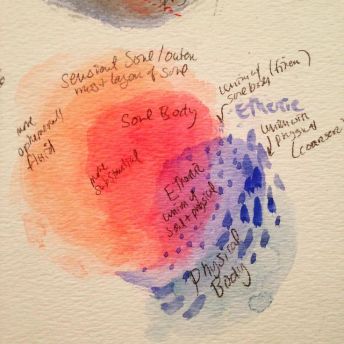 Sensient Soul/outer
most layer of Soul
more
ephemeral/
fluid
Soul Body
more
substantial
union of (finer)
soul body
Etheric
union with
physical
(coarser)
Etheric
union of
soul + physical
Physical
Body